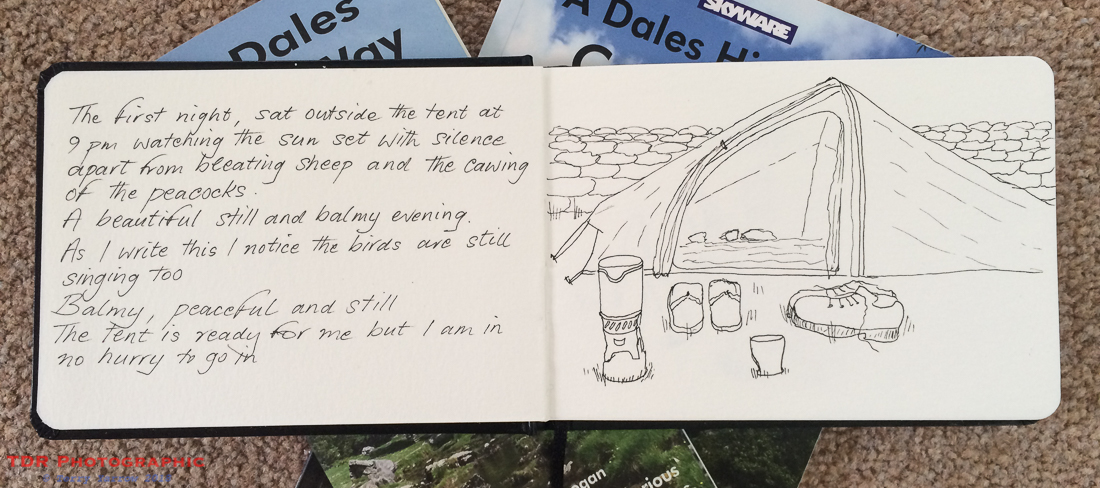 Dales
Way
SKYWARE
A Dales Hi
The first night, sat outside the tent at
9 pm watching the sun set with silence
apart from bleating sheep and the cawing
of the peacocks.
A beautiful still and balmy evening.
As I write this I notice the birds are still
singing too
Balmy, peaceful and still
The tent is ready for me but I am in
no hurry to go in
TDR PHOTOGRAPHIC